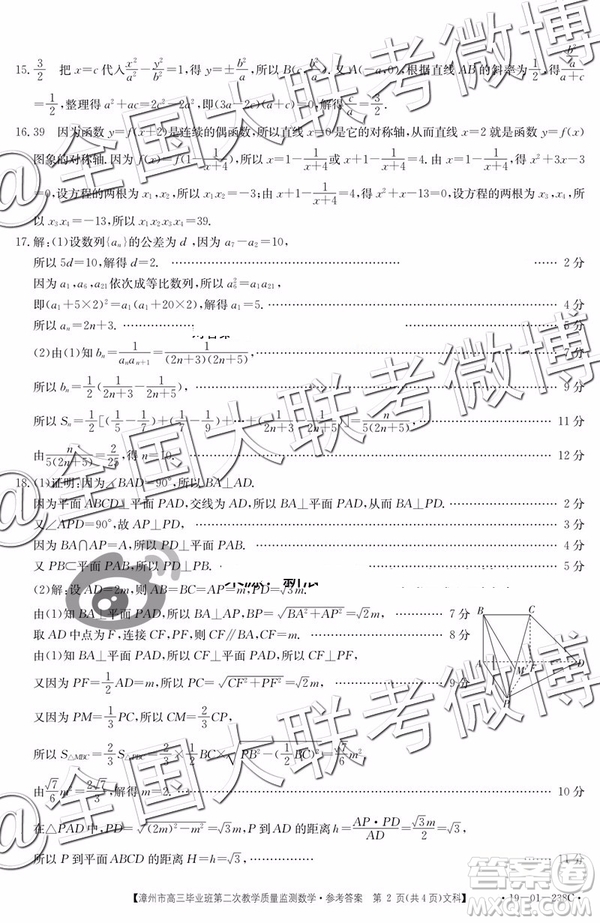 15. 3/2 把 x=c 代入 x²/a² - y²/b² =1, 得 y=± b²/a, 所以 B(c, 又 A(-a,0), 根据直线 AB 的斜率为 1/2, 得
=1/2, 整理得 a²+ac=2c²-2a², 即 解得 c/a=3/2.
16. 39 因为函数 y=f(x+2)是连续的偶函数, 所以直线 x=0 是它的对称轴, 从而直线 x=2 就是函数 y=f(x)
图象的对称轴. 因为 f(x)=f(1-1/(x+4)), 所以 x=1-1/(x+4) 或 x+1-1/(x+4)=4. 由 x=1-1/(x+4), 得 x²+3x-3
=0, 设方程的两根为 x₁,x₂, 所以 x₁x₂=-3; 由 x+1-1/(x+4)=4, 得 x²+x-13=0, 设方程的两根为 x₃,x₄, 所
以 x₃x₄=-13, 所以 x₁x₂x₃x₄=39.
17. 解:(1)设数列{aₙ}的公差为 d, 因为 a₇-a₂=10,
所以 5d=10, 解得 d=2. 2 分
因为 a₁,a₆,a₂₁ 依次成等比数列, 所以 a₆²=a₁a₂₁,
即(a₁+5×2)²=a₁(a₁+20×2), 解得 a₁=5. 4 分
所以 aₙ=2n+3. 5 分
(2)由(1)知 bₙ=1/(aₙaₙ₊₁)=1/((2n+3)(2n+5)),
所以 bₙ=1/2(1/(2n+3)-1/(2n+5)), 9 分
所以 Sₙ=1/2[(1/5-1/7)+(1/7-1/9)+…+1/(2n+3)-1/(2n+5)]=n/(5(2n+5)), 11 分
由 n/(5(2n+5))=2/25, 得 12 分
18. (1)证明:因为∠BAD=90°, 所以 BA⊥AD.
因为平面 ABCD⊥平面 PAD, 交线为 AD, 所以 BA⊥平面 PAD, 从而 BA⊥PD. 2 分
又∠APD=90°, 故 AP⊥PD, 3 分
因为 BA∩AP=A, 所以 PD⊥平面 PAB.
又 PB⊂平面 PAB, 所以 PB⊥PD. 5 分
(2)解:设 AD=2m, 则 AB=BC=AP=m, PD=√3m.
由(1)知 BA⊥平面 PAD, 所以 BA⊥AP, BP=√(BA²+AP²)=√2m, 7 分
取 AD 中点为 F, 连接 CF, PF, 则 CF∥BA, CF=m. 8 分
由(1)知 BA⊥平面 PAD, 所以 CF⊥平面 PAD, 所以 CF⊥PF.
又因为 PF=1/2AD=m, 所以 PC=√(CF²+PF²)=√2m,
又因为 PM=2CM, 所以 CM=2/3
所以 S△MBC=2/3S△PBC=2/3×1/2BC×√(PB²-(BC/2)²)=√7/6m²
由 √7/6m²=2√7/3, 解得 m=2. 10 分
在△PAD 中, PD=√((2m)²-m²)=√3m, P 到 AD 的距离 h=AP·PD/AD=√3m/2=√3,
所以 P 到平面 ABCD 的距离 H=h=√3. 11 分
B C
A M F D
P
【漳州市高三毕业班第二次教学质量监测数学·参考答案 第 2 页(共 4 页)文科】
·19-01-238C·
@全国大联考微博
@全国大联考微博
@全国大联考微博